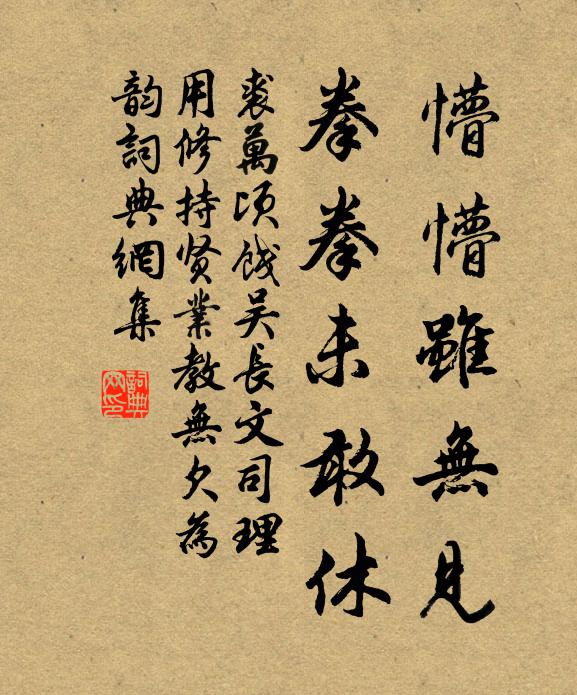 懵懵雖無見
拳拳未敢休
裘萬頃餞吴長文司理
用修持贤業教無久为
韵詞典網集
詞典
网印